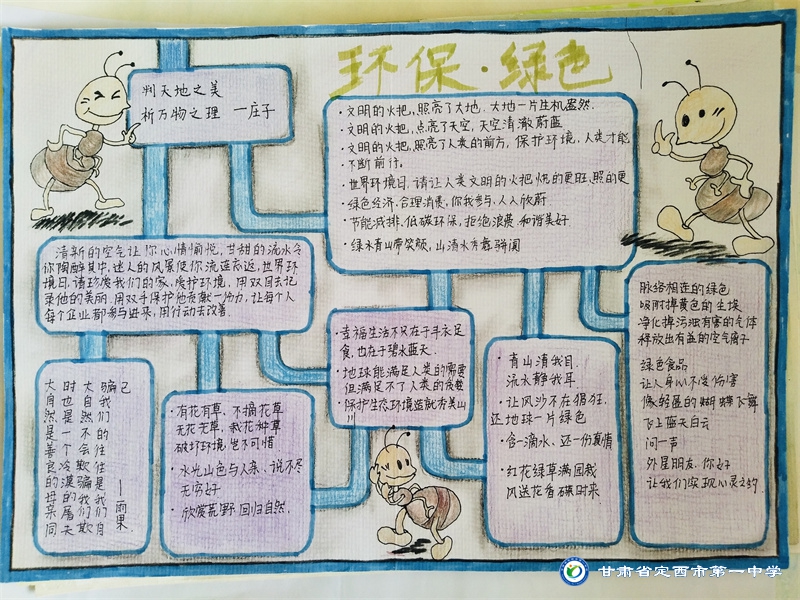 环保·绿色
判天地之美
析万物之理 一庄子
·文明的火把,照亮了大地.大地一片生机盎然.
·文明的火把,点亮了天空,天空清澈蔚蓝
·文明的火把,照亮了人类的前方,保护环境,人类才能
·不断前行.
·世界环境日.请让人类文明的火把烧的更旺.照的更
·绿色经济.合理消费.你我参与.人人欣蔚
·节能减排.低碳环保,拒绝浪费.和谐美好
·绿水青山带笑颜,山清水秀靠
清新的空气让你心情愉悦,甘甜的流水令
你陶醉其中,迷人的风景使你流连忘返,世界环
境日,请珍爱我们的家,爱护环境,用双目去记
录他的美丽.用双手保护他贡献一份力,让每个人
每个企业都参与进来,用行动去改善.
脉络相连的绿色
吸附掉黄色的尘埃
净化掉污浊有害的气体
释放出有益的空气离子
绿色食品
让人身心不受伤害
像轻盈的蝴蝶飞舞
飞上蓝天白云
问一声
外星朋友.你好
让我们实现心灵之约
·幸福生活不只在于丰衣足
食,也在于碧水蓝天.
·地球能满足人类的需要
但满足不了人类的贪婪
·保护生态环境造就秀美山
川
·青山清我目.
流水静我耳
·让风沙不在猖狂.
还地球一片绿色
·含一滴水、还一份真情
·红花绿草满园栽
风送花香碟时来
大 时 大 骗 己
自 也 自 我
然 是 然 们
是 一 不 的
善 个 会 往
良 冷 欺 往
的 漠 骗 是
母 的 我 我
亲 屠 们 们
同 夫 欺 自
一雨果
·有花有草、不摘花草
无花无草、栽花种草
破坏环境岂不可惜
·水光山色与人亲、说不尽
无穷好
·欣赏荒野回归自然.
甘肃省定西市第一中学